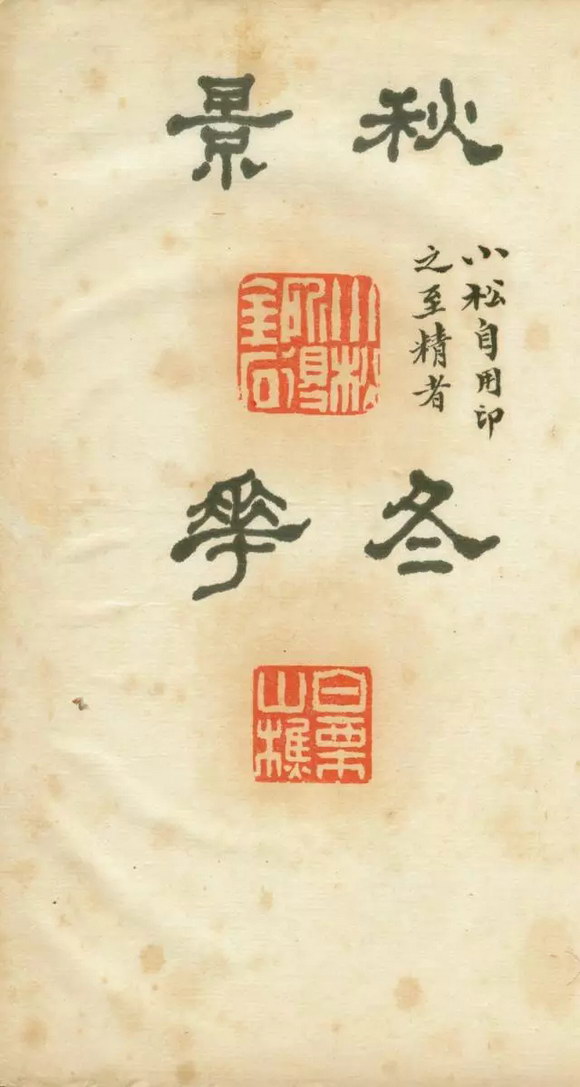 秋景
小松自用印
之至精者
小松所得金石
冬華
白栗山樵